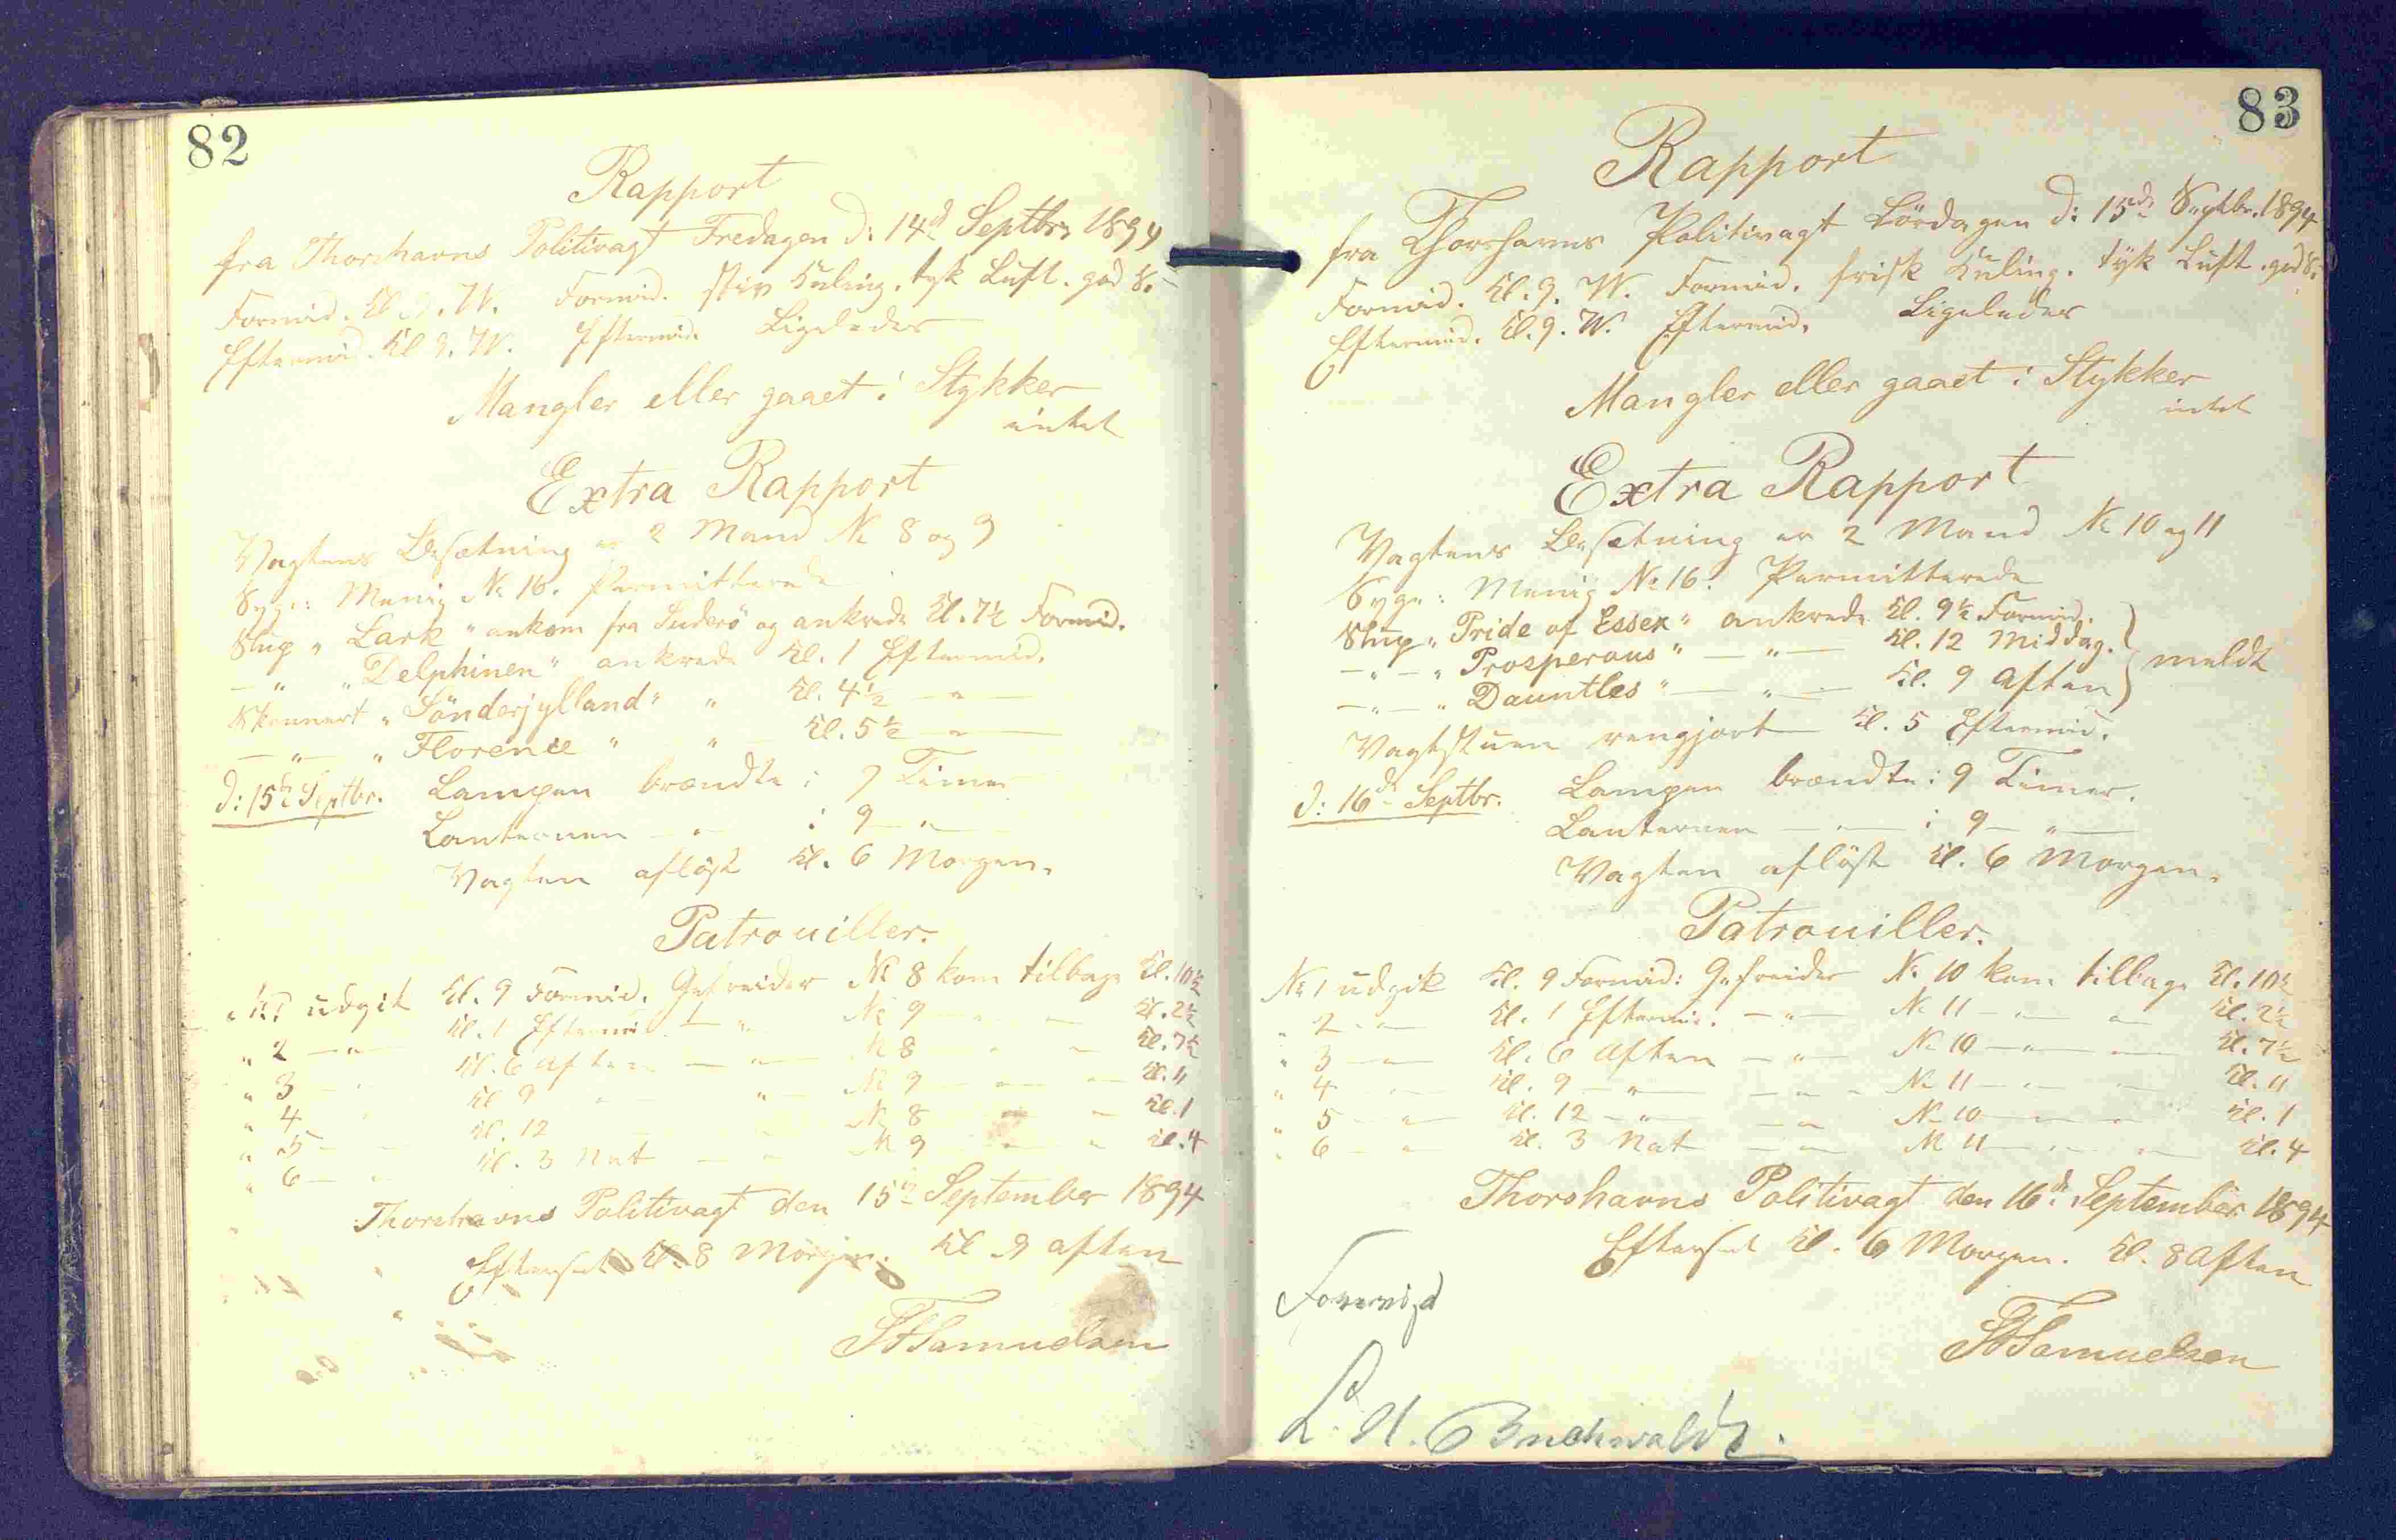 82
Rapport
fra Thorshavns Politivagt Fredagen d: 14d Septbr 1894
Formid. Kl. 9. W. Formid. stiv Kuling. tyk Luft. god S.
Eftermid. Kl. 9. W. Eftermid. Ligeledes
Mangler eller gaaet i Stykker
intet
Extra Rapport
Vagtens Besætning er 2 Mand No 8 og 9
Syge: Menig No 16. Permitterede
Slup „ Lark " ankom fra Suderö og ankrede Kl. 7½ Formid.
— " — „ Delphinen " ankrede Kl. 1 Eftermid.
Skonnert „ Sönderjylland " " Kl. 4½ — " —
— " — „ Florence " " Kl. 5½ — " —
d: 15de Septbr. Lampen brændte i 9 Timer
Lanternen — " — i 9 — " —
Vagten aflöst Kl. 6 Morgen.
Patrouiller.
No 1 udgik Kl. 9 Formid. Gefreider No 8 kom tilbage Kl. 10½
" 2 — " — Kl. 1 Eftermid. — " — No 9 — " — " — Kl. 2½
" 3 — " — Kl. 6 Aften — " — No 8 — " — " — Kl. 7½
" 4 — " — Kl. 9 — " — " — No 9 — " — " — Kl. 11
" 5 — " — Kl. 12 — " — " — No 8 — " — " — Kl. 1
" 6 — " — Kl. 3 Nat — " — No 9 — " — " — Kl. 4
Thorshavns Politivagt den 15de September 1894
Efterset Kl. 8 Morgen. Kl. 9 Aften
Samuelsen
83
Rapport
fra Thorshavns Politivagt Lördagen d: 15de Septbr. 1894
Formid. Kl. 9. W. Formid. frisk Kuling. tyk Luft. god S.
Eftermid. Kl. 9. W. Eftermid. Ligeledes
Mangler eller gaaet i Stykker
intet
Extra Rapport
Vagtens Besætning er 2 Mand No 10 og 11
Syge: Menig No 16. Permitterede
Slup „ Pride of Essex " ankrede Kl. 9½ Formid.
— " — „ Prosperous " — " — Kl. 12 Middag. } meldt
— " — „ Dauntles " — " — Kl. 9 Aften
Vagtstuen rengjort Kl. 5 Eftermid.
d: 16de Septbr. Lampen brændte i 9 Timer.
Lanternen — " — i 9 — " —
Vagten aflöst Kl. 6 Morgen.
Patrouiller.
No 1 udgik Kl. 9 Formid: Gefreider No 10 kom tilbage Kl. 10½
" 2 — " — Kl. 1 Eftermid. — " — No 11 — " — " — Kl. 2½
" 3 — " — Kl. 6 Aften — " — No 10 — " — " — Kl. 7½
" 4 — " — Kl. 9 — " — " — No 11 — " — " — Kl. 11
" 5 — " — Kl. 12 — " — " — No 10 — " — " — Kl. 1
" 6 — " — Kl. 3 Nat — " — No 11 — " — " — Kl. 4
Thorshavns Politivagt den 16de September 1894
Efterset Kl. 6 Morgen. Kl. 8 Aften
Forevist
Samuelsen
Buchwaldt.